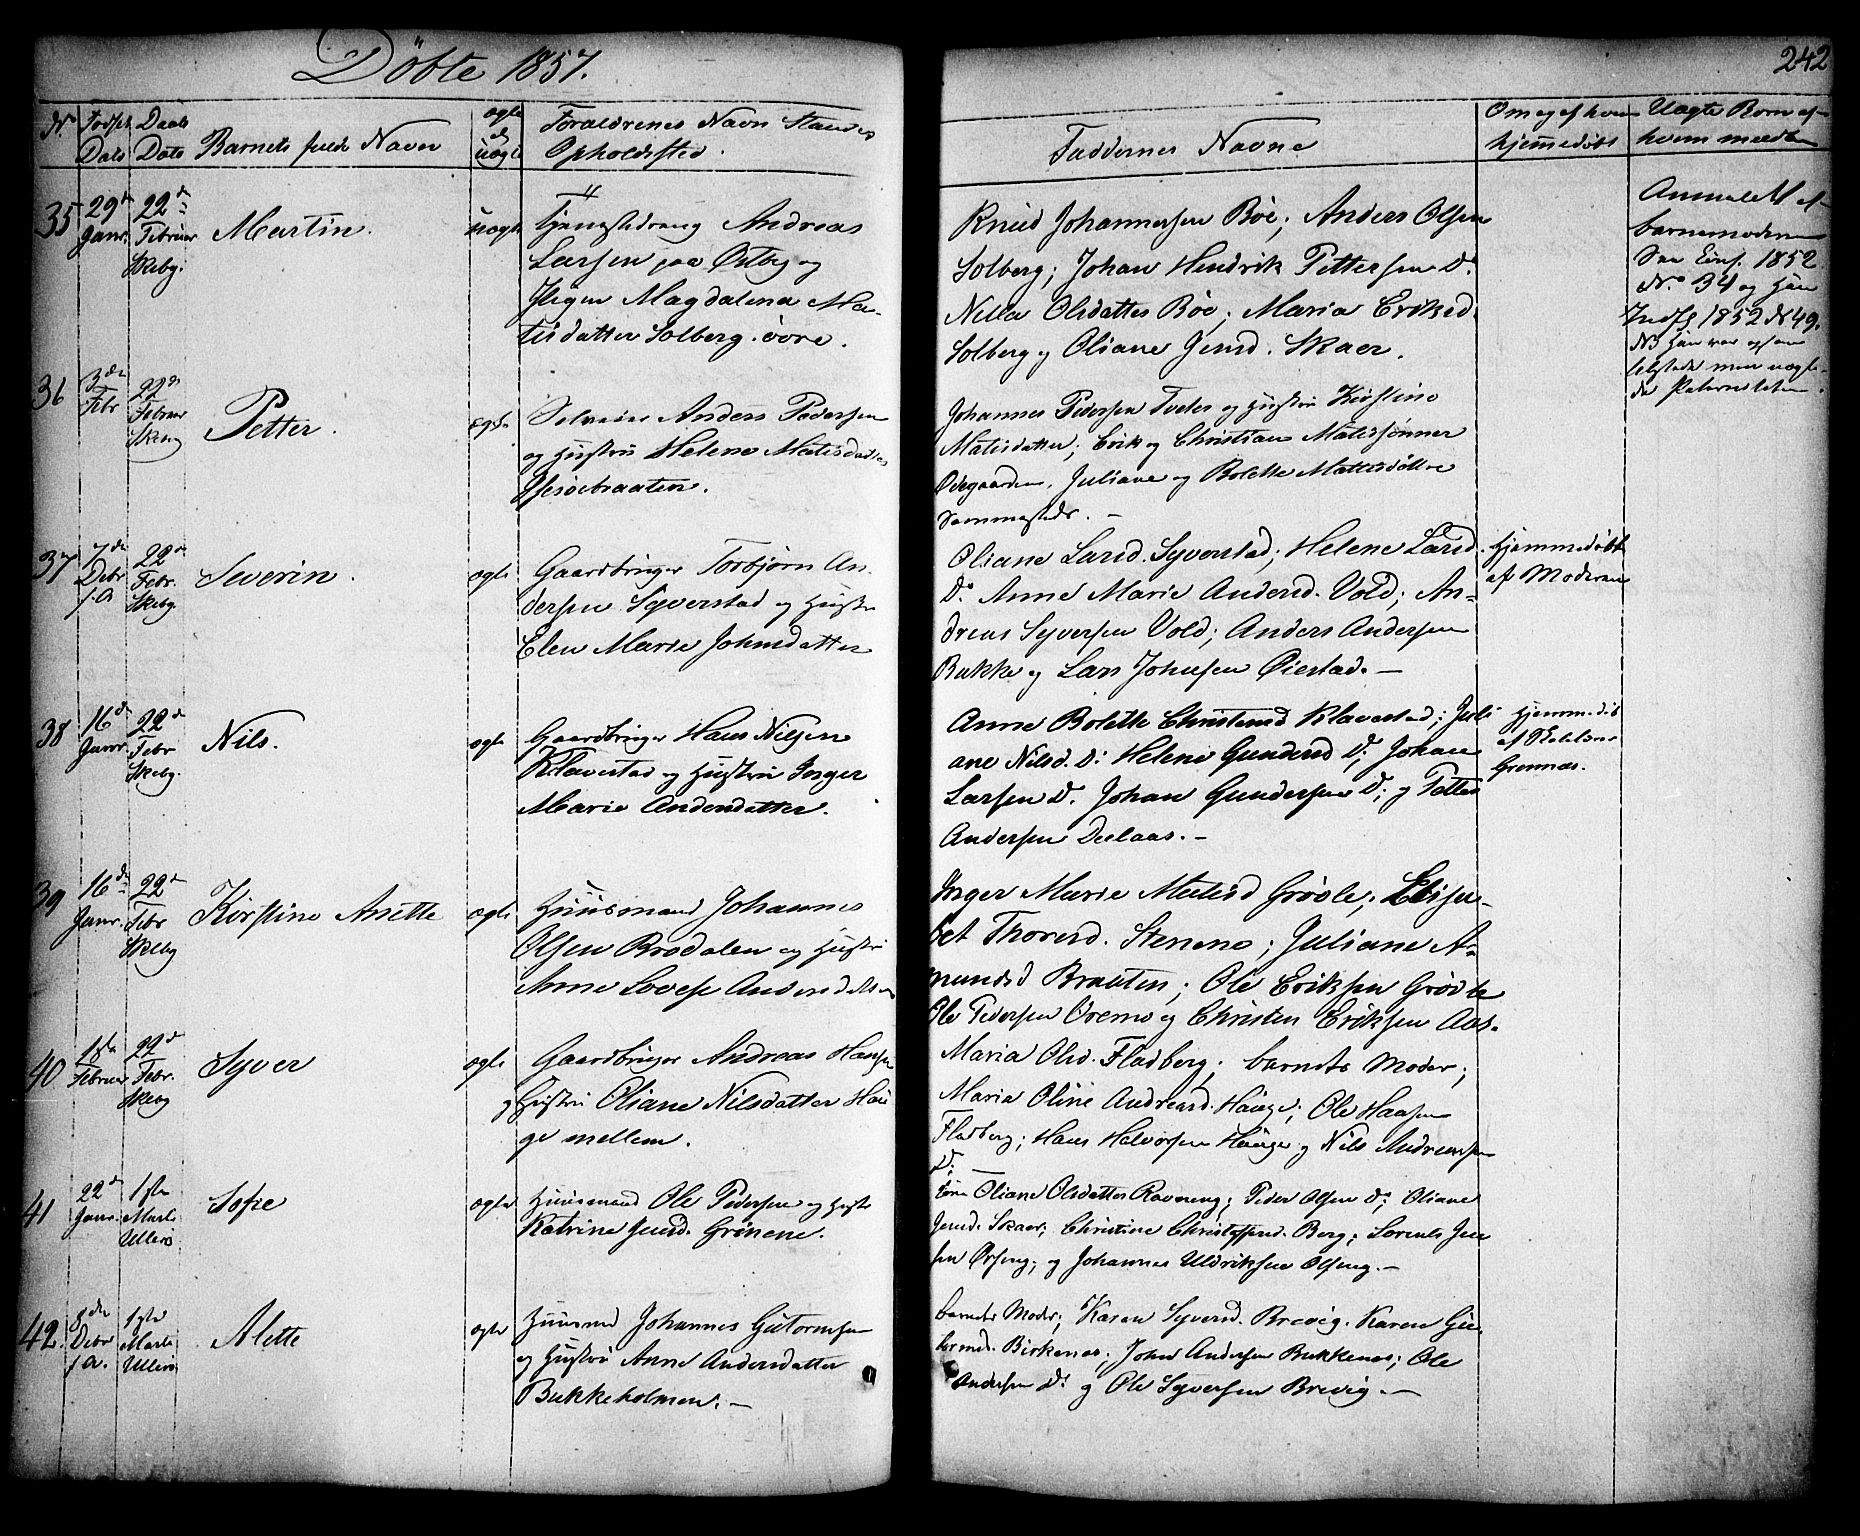 Döbte 1857.
242
No
Födsels Dato
Daabs Dato
Barnets fulde Navn
ægte el uægte
Forældrenes Navn Stand
Opholdsted.
Faddernes Navne
Om og af hvem
hjemmedöbt
Uægte Börn af
hvem meldte
35
29d
Janr.
22d
Februar
Skebg.
Martin.
uægte
Tjenestedreng Andreas
Larsen paa Østby og
Magdalena Ma-
tisdatter Solberg övre.
Knud Johannessen Böe; Anders Olsen
Solberg; Johan Hendrik Pettersen Do
Nella Olsdatter Böe; Maria Eriksd.
Solberg og Oliane Jensd. Skaer.
Anmeldt af
barnemoderen
1852
No 34 og Hun
Indfl 1852 No 49.
36
3die
Febr
22d
Februar
Skebg
Petter.
ægte
Selveier Anders Pedersen
og Hustru Helene Matisdatter
Johannes Pedersen Tveter og Hustru Kirstine
Matisdatter; Erik og Christian Matissönner
Ödegaarden, Juliane og Bolette Mattisdöttre
Sammesteds. –
37
7de
Debr
f.A
22d
Febr.
Skebg.
Severin.
ægte
Gaardbruger Torbjörn An-
dersen Syverstad og Hustru
Elen Marie Johnsdatter
Oliane Larsd. Syverstad; Helene Larsd.
Do Anne Marie Andersd. Vold; An-
dreas Syversen Vold; Anders Andersen
Bukke og Lars Johnsen Öiestad. –
Hjemmedöbt
af Moderen
38
16d
Janr.
22d
Febr
Skebg.
Nils.
ægte
Gaardbruger Hans Nilsen
Klavestad og Hustru Inger
Marie Andersdatter.
Anne Bolette Christensd Klavestad; Juli
ane Nilsd. Do Helene Gundersd Do; Johan
Larsen Do. Johan Gundersen Do; og Petter
Andersen Deelaas. –
Hjemmedöb
af
Grönnæs.
39
16d
Janr.
22d
Febr
Skebg
Kirstine Anette
ægte
Huusmand Johannes
Olsen Brodalen og Hustru
Anne Lovise Andersdatter
Inger Marie Matisd Gröole; Elisa-
bet Thoresd. Stenene; Juliane A-
mundsd Braaten; Ole Eriksen Grötte
Ole Pedersen Oremo og Christen Eriksen Aas.
40
18de
Februar
22d
Febr.
Skebg
Syver
ægte
Gaardbruger Andreas Hansen
og Hustru Oliane Nilsdatter Hau
ge mellem.
Maria Olsd. Fladberg; barnets Moder;
Maria Oline Andreasd. Hauge; Ole Hansen
Fladberg; Hans Halvorsen Hauge og Nils Andreassen
Do
41
22d
Janr.
1ste
Marts
Ulleró
Sofie
ægte
Huusmand Ole Pedersen og Hustru
Katrine Jensd. Grönene.
Oliane Olsdatter Ravneng; Peder Olsen Do; Oliane
Jensd. Skaer; Christine Christoffersd. Berg; Lorents Jen
sen Örseng; og Johannes Uldriksen Olseng. –
42.
8de
Debr
f.A.
1ste
Marts
Ulleró
Alette
ægte
Huusmd Johannes Gutormsen
og Hustru Anne Andersdatter
Bukkeholmen. –
barnets Moder; Karen Syversd. Brevig. Karen Gu-
tormsd. Birkenæs; John Andersen Bukkenæs; Ole
Andersen Do og Ole Syversen Brevig –